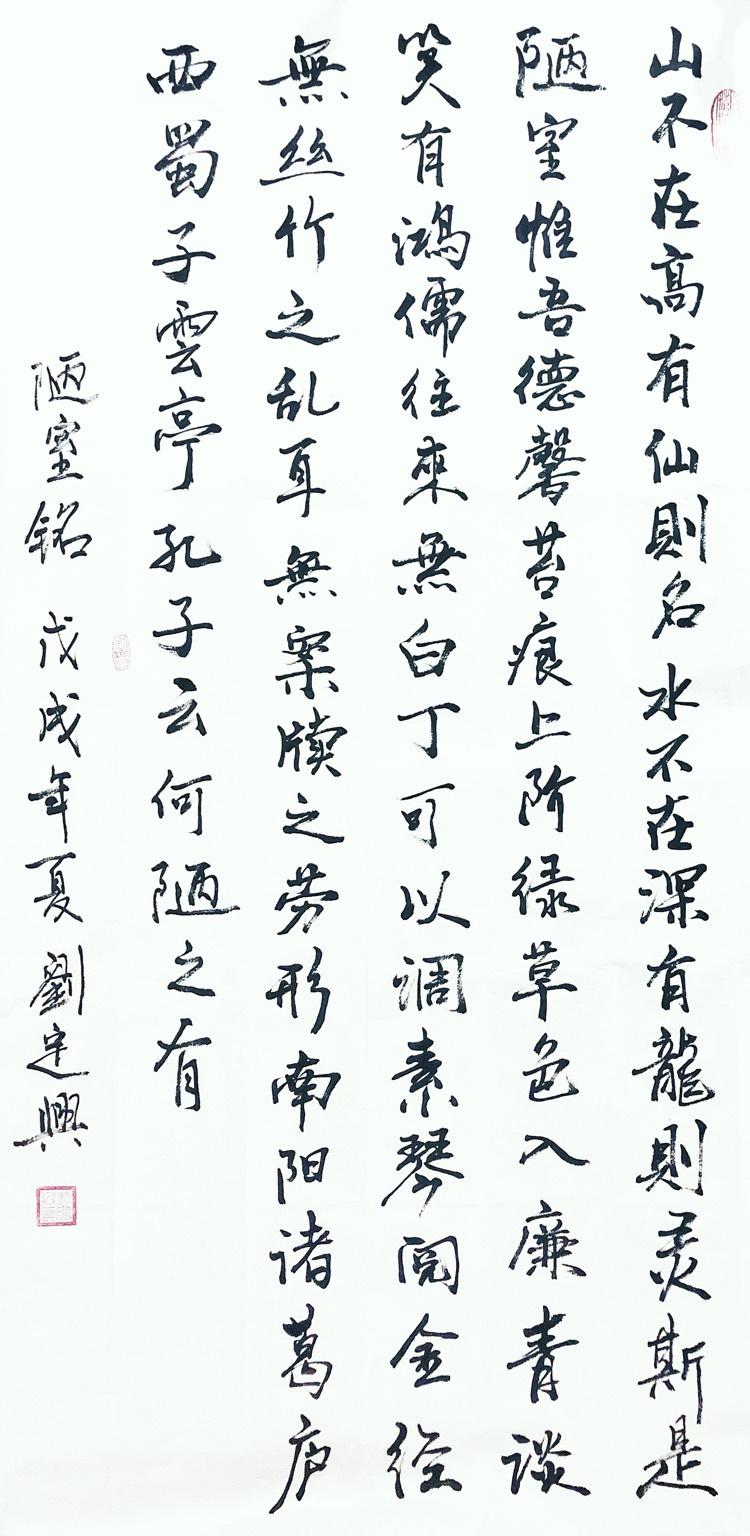 山不在高有仙則名水不在深有龍則灵斯是
陋室惟吾德馨苔痕上阶绿草色入廉青谈
笑有鴻儒往來無白丁可以调素琴阅金经
無丝竹之乱耳無案牍之劳形南阳诸葛庐
西蜀子雲亭孔子云何陋之有
陋室铭 戊戌年夏劉定興